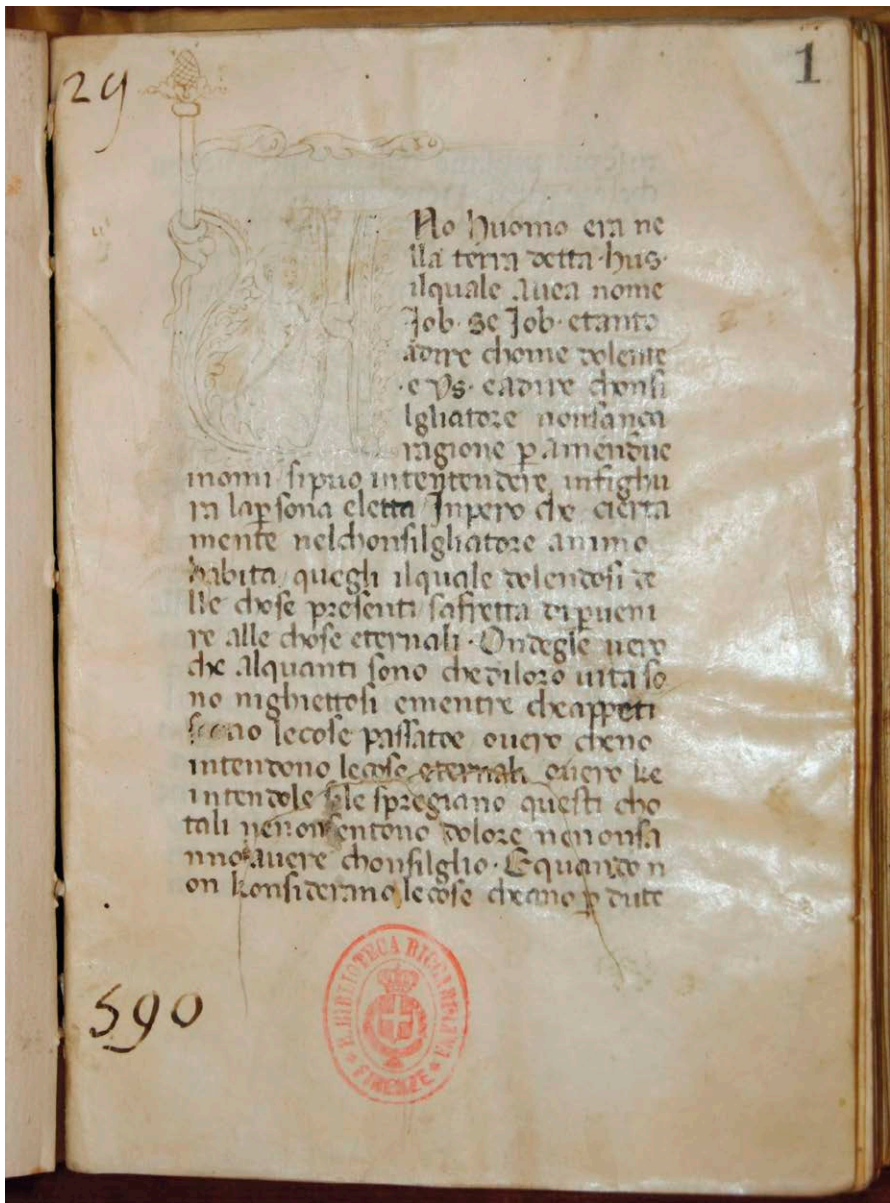 29
1
No huomo era ne
lla terra detta · hus ·
ilquale auea nome
Job · se Job · etanto
adire chome dolente
· e vs · eadire chonsi
lgliatore nonsança
ragione p amendue
inomi sipuo intentendere infighu
ra lap sona eletta Inpero che cierta
mente nelchonsilgliatore animo
habita quegli ilquale dolendosi de
lle chose presenti safretta di pueni
re alle chose eternali · Ondegle uero
che alquanti sono chediloro uita so
no nighiettosi ementre cheappeti
lecose passatoe ouero cheno
intendono lecose eternali ouero ke
intendole sile spregiano questi cho
tali nenonsentono dolore nenonsa
nno auere chonsilglio · Equando n
on konsiderano lecose cheano p dute
590
R. BIBLIOTECA RICCARDIANA
FIRENZE